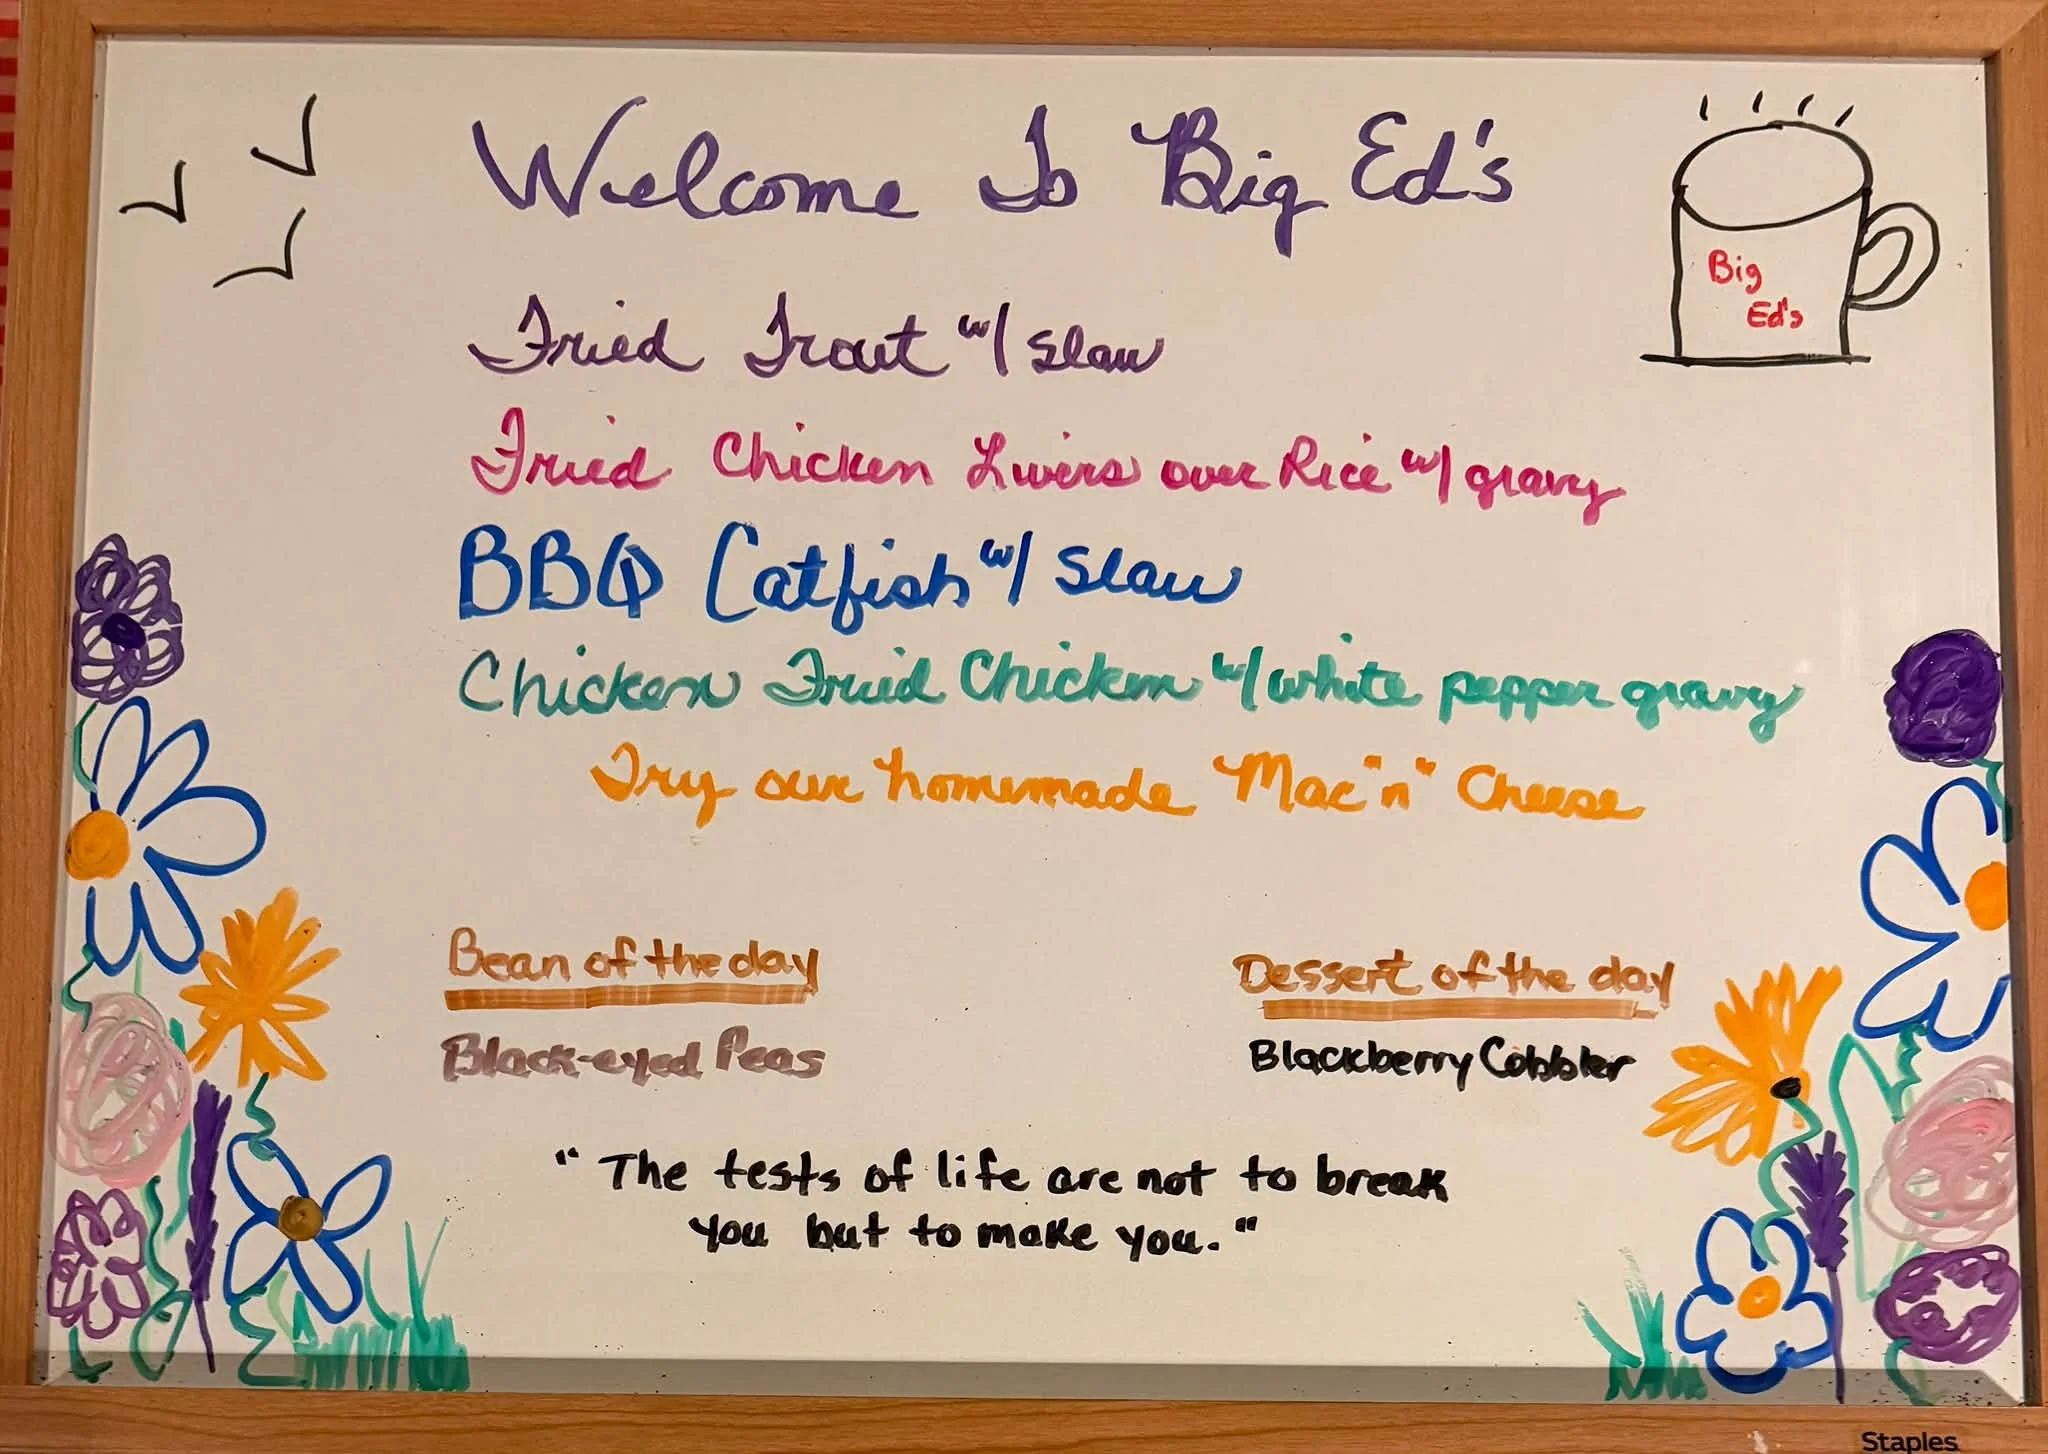 Welcome To Big Ed's
Big
Ed's
Fried Trout w/ Slaw
Fried Chicken Livers over Rice w/ gravy
BBQ Catfish w/ Slaw
Chicken Fried Chicken w/ white pepper gravy
Try our homemade "Mac"n" Cheese
Bean of the day
Black-eyed Peas
Dessert of the day
Blackberry Cobbler
"The tests of life are not to break
you but to make you."
Staples